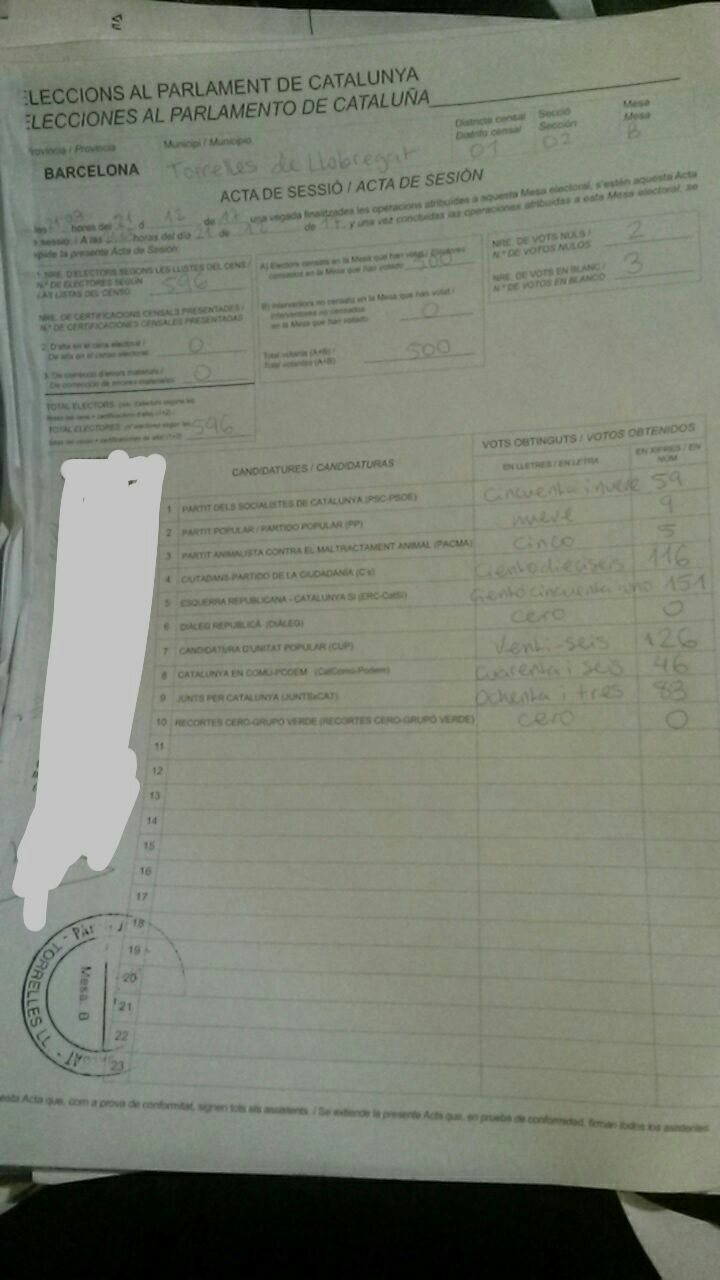 ELECCIONS AL PARLAMENT DE CATALUNYA
ELECCIONES AL PARLAMENTO DE CATALUÑA
Província / Provincia
BARCELONA
Municipi / Municipio
Torrelles de Llobregat
Districte censal
Distrito censal
01
Secció
Sección
02
Mesa
Mesa
B
ACTA DE SESSIÓ / ACTA DE SESIÓN
hores del 21 d 12 de 17, una vegada finalitzades les operacions atribuïdes a aquesta Mesa electoral, s'estén aquesta Acta
sessió / A las horas del día 21 de 12 de 17, y una vez concluidas las operaciones atribuidas a esta Mesa electoral, se
expide la presente Acta de Sesión:
1. NRE. D'ELECTORS SEGONS LES LLISTES DEL CENS /
N.º DE ELECTORES SEGÚN
LAS LISTAS DEL CENSO
596
NRE. DE CERTIFICACIONS CENSALS PRESENTADES /
N.º DE CERTIFICACIONES CENSALES PRESENTADAS
2. D'alta en el cens electoral /
De alta en el censo electoral
0
3. De correcció d'errors materials /
De corrección de errores materiales
0
TOTAL ELECTORS
TOTAL ELECTORES
596
A) Electors censats en la Mesa que han votat / Electores
censados en la Mesa que han votado
500
B) Interventors no censats en la Mesa que han votat /
Interventores no censados
en la Mesa que han votado
0
Total votants (A+B) /
Total votantes (A+B)
500
NRE. DE VOTS NULS /
N.º DE VOTOS NULOS
2
NRE. DE VOTS EN BLANC /
N.º DE VOTOS EN BLANCO
3
CANDIDATURES / CANDIDATURAS
VOTS OBTINGUTS / VOTOS OBTENIDOS
EN LLETRES / EN LETRA
EN XIFRES / EN
NÚM
1 PARTIT DELS SOCIALISTES DE CATALUNYA (PSC-PSOE) Cincuenta i nueve 59
2 PARTIT POPULAR / PARTIDO POPULAR (PP) nueve 9
3 PARTIT ANIMALISTA CONTRA EL MALTRACTAMENT ANIMAL (PACMA) cinco 5
4 CIUTADANS-PARTIDO DE LA CIUDADANÍA (C's) Ciento dieciseis 116
5 ESQUERRA REPUBLICANA - CATALUNYA SÍ (ERC-CatSí) Ciento cincuenta uno 151
6 DIÀLEG REPUBLICÀ (DIÀLEG) cero 0
7 CANDIDATURA D'UNITAT POPULAR (CUP) Venti-seis 126
8 CATALUNYA EN COMÚ-PODEM (CatComú-Podem) Cuarenta i seis 46
9 JUNTS PER CATALUNYA (JUNTSxCAT) Ochenta i tres 83
10 RECORTES CERO-GRUPO VERDE (RECORTES CERO-GRUPO VERDE) cero 0
11
12
13
14
15
16
17
18
19
20
21
22
23
TORRELLES LL
Mesa B
esta Acta que, com a prova de conformitat, signen tots els assistents. / Se extiende la presente Acta que, en prueba de conformidad, firman todos los asistentes.